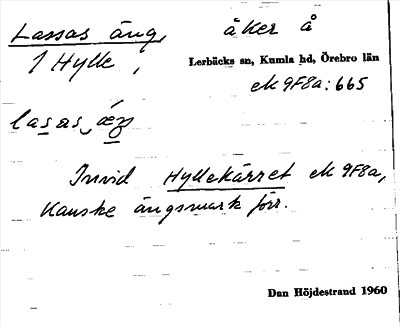 Lassas äng, åker å
1 Hylle,
Lerbäcks sn, Kumla hd, Örebro län
ek 9F8a:665
lasas
Invid Hyllekärret ek 9F8a,
Kanske ängsmark förr.
Dan Höjdestrand 1960